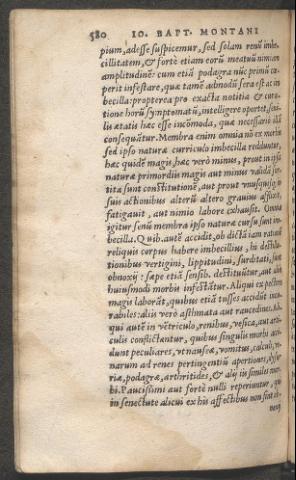 580 IO. BAPT. MONTANI
pium, adesse suspicemur, sed solam renũ imbe-
cillitatem, & fortè etiam eorũ meatuũ nimiam
amplitudinẽ: cum etiã podagra nũc primũ cœ-
perit infestare, quæ tamẽ admodũ sera est ac im
becilla: propterea pro exacta notitia & cura-
tione horũ symptomatũ, intelligere oportet, seni
lis ætatis hæc esse incõmoda, quæ necessariò illã
consequãtur. Membra enim omnia nõ ex morbo
sed ipso naturæ curriculo imbecilla redduntur,
hæc quidẽ magis, hæc verò minus, prout in ipsis
naturæ primordiis magis aut minus validã sor-
tita sunt constitutionẽ, aut prout vnusquisq;
suis actionibus alterũ altero grauius afflixit,
fatigauit, aut nimio labore exhausit. Omnia
igitur senũ membra ipso naturæ cursu sunt im-
becilla. Quib. autẽ accidit, ob dictã iam rationẽ
reliquis corpus habere imbecillius, hi destilla-
tionibus vertigini, lippitudini, surditati, sunt
obnoxij: sæpe etiã sensib. destituũtur, aut aliis
huiusmodi morbis infestãtur. Aliqui ex pectore
magis laborãt, quibus etiã tusses accidũt incu-
rabiles: aliis verò asthmata aut raucedines. Ali-
qui autẽ in vẽtriculo, renibus, vesica, aut arti-
culis conflictantur, quibus singulis morbi acci-
dunt peculiares, vt nauseæ, vomitus, calculi, ve-
narum ad renes pertingentiũ apertiones, dysu-
riæ, podagræ, arthritides, & alij in similes mor-
bi. Paucissimi aut fortè nulli reperiuntur, qui
in senectute alicui ex his affectibus non sint ob-